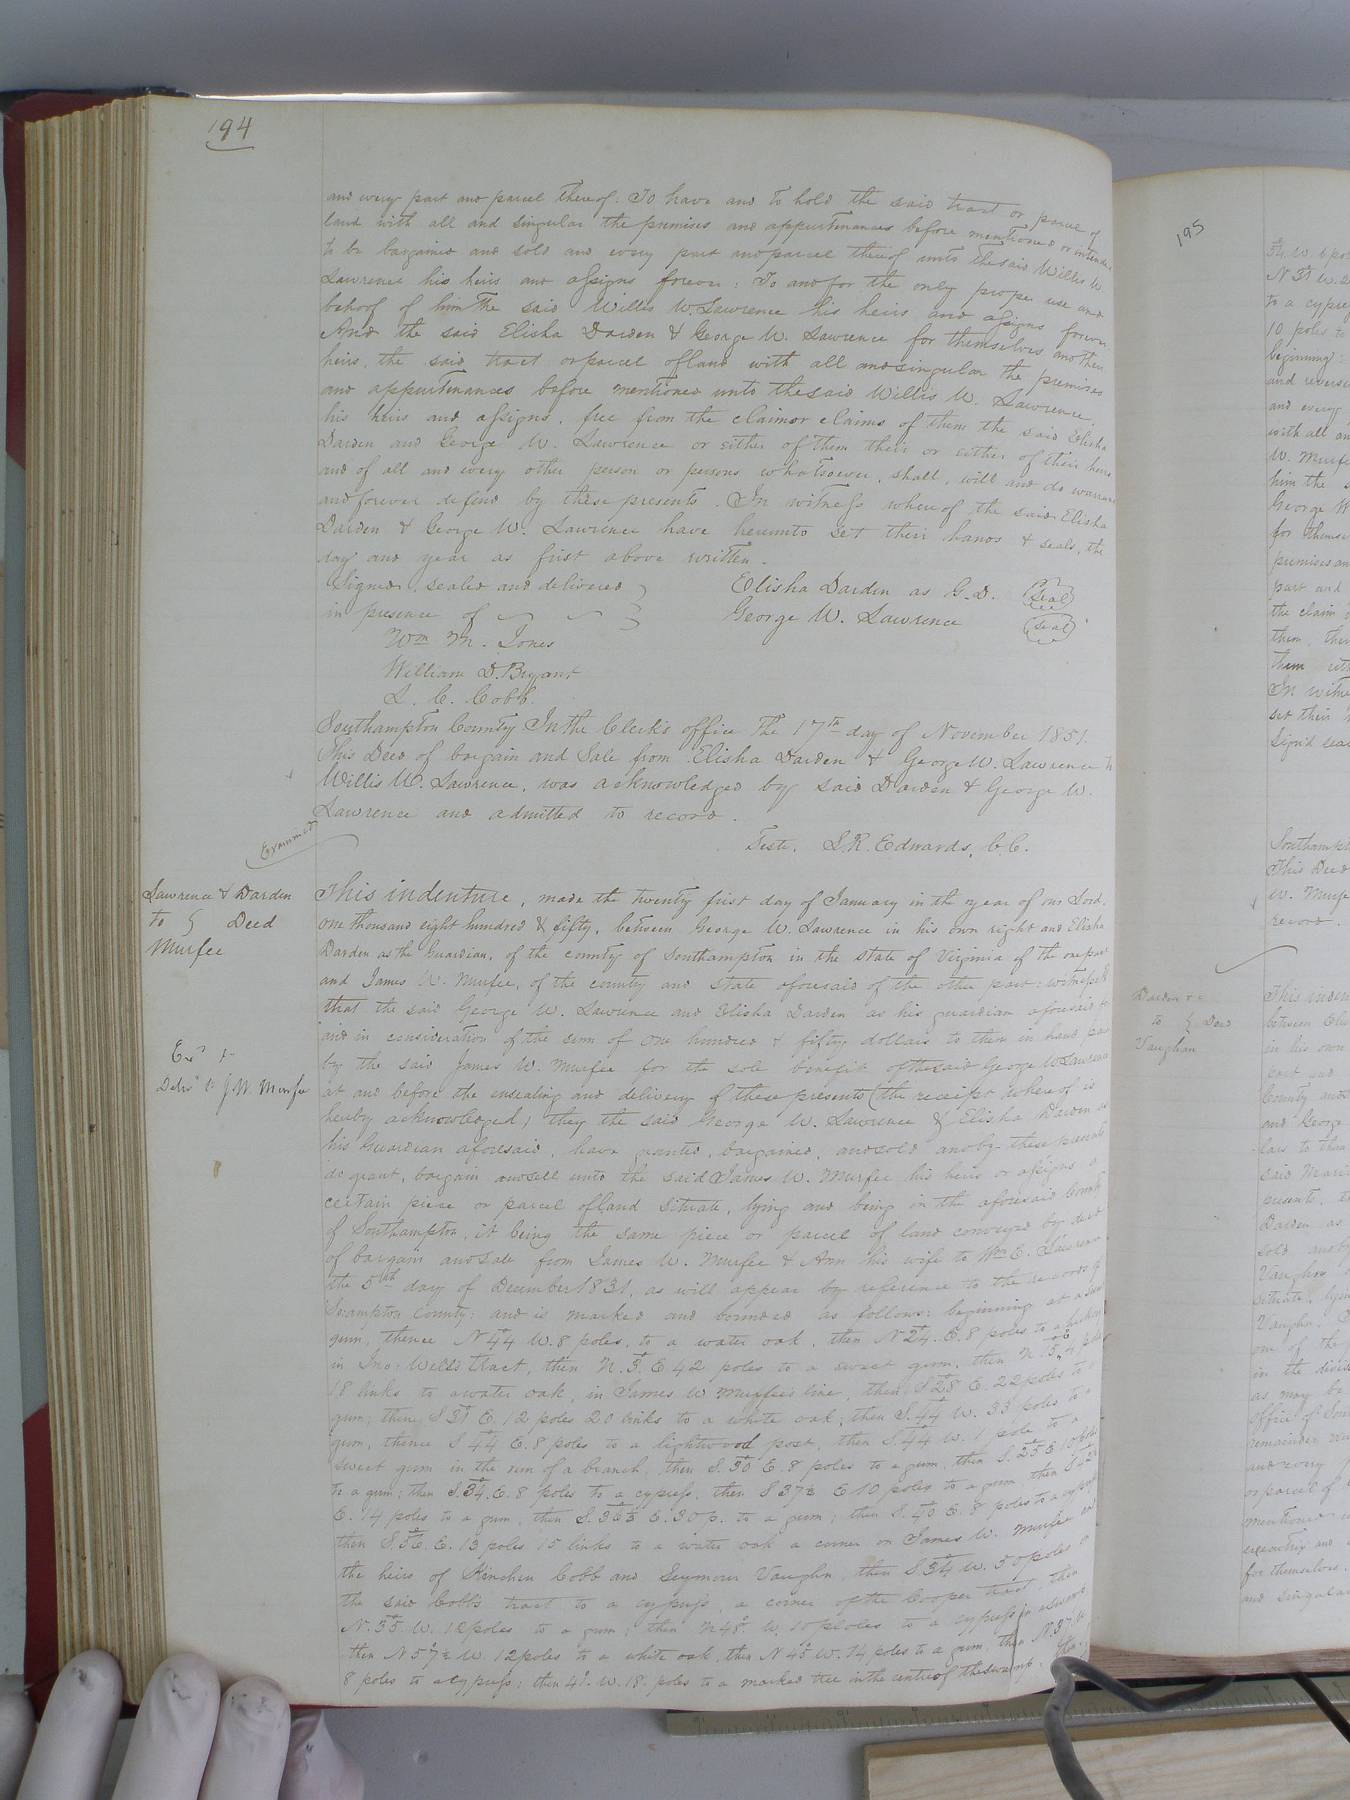 194
and every part and parcel thereof. To have and to hold the said tract or parcel of
land with all and singular the premises and appurtenances before mentioned or intended
to be bargained and sold and every part and parcel thereof unto the said Willis W.
Lawrence his heirs and assigns forever: To and for the only proper use and
behoof of him the said Willis W. Lawrence his heirs and assigns forever
And the said Elisha Darden & George W. Lawrence for themselves and their
heirs, the said tract or parcel of land with all and singular the premises
and appurtenances before mentioned unto the said Willis W. Lawrence,
his heirs and assigns, free from the claim or claims of them the said Elisha
Darden and George W. Lawrence or either of them their or either of their heirs
and of all and every other person or persons whatsoever, shall, will and do warrant
and forever defend by these presents. In witness whereof the said Elisha
Darden & George W. Lawrence have hereunto set their hands & seals, the
day and year as first above written.
Signed, sealed and delivered
in presence of
Elisha Darden as G.D. (Seal)
George W. Lawrence (Seal)
Wm M. Jones
William D. Bryant
L. C. Cobb.
Southampton County In the Clerk's office the 17th day of November 1851.
This Deed of bargain and Sale from Elisha Darden & George W. Lawrence to
Willis W. Lawrence, was acknowledged by said Darden & George W.
Lawrence and admitted to record.
Teste. L.R. Edwards, C.C.
Examined
Lawrence & Darden
to } Deed
Murfee
Exd &
Delivd to J.W. Murfee
This indenture, made the twenty first day of January in the year of our Lord,
one thousand eight hundred & fifty, between George W. Lawrence in his own right and Elisha
Darden as the Guardian, of the county of Southampton in the state of Virginia of the one part
and James W. Murfee, of the county and state aforesaid of the other part: witnesseth
that the said George W. Lawrence and Elisha Darden as his guardian aforesaid for
and in consideration of the sum of one hundred & fifty dollars to them in hand paid
by the said James W. Murfee for the sole benefit of the said George W. Lawrence
at and before the ensealing and delivery of these presents (the receipt whereof is
hereby acknowledged) they the said George W. Lawrence & Elisha Darden as
his Guardian aforesaid, have granted, bargained, and sold and by these presents
do grant, bargain and sell unto the said James W. Murfee his heirs or assigns a
certain piece or parcel of land situate, lying and being in the aforesaid County
of Southampton, it being the same piece or parcel of land conveyed by deed
of bargain and sale from James W. Murfee & Ann his wife to Wm E. Lawrence
the 5th day of December 1831, as will appear by reference to the records of
Soampton County: and is marked and bounded as follows: beginning at a
gum, thence N 44 W. 8 poles, to a water oak, then N 24. E. 8 poles to a
in Jno: Wells tract, then N. 3. E 42 poles to a sweet gum, then N.
18 links to a water oak, in James W Murfee's line, then S 28 E. 22 poles to a
gum; then S 31 E. 12 poles 20 links to a white oak; then S. 44 W. 33 poles to a
gum, thence S 44 E. 8 poles to a lightwood post, then S. 44 W. 1 pole to a
sweet gum in the run of a branch, then S. 30 E. 8 poles to a gum, then S. 25 E 10 poles
to a gum; then S. 34. E. 8 poles to a cypress, then S 37½ E 10 poles to a gum, then S
E. 14 poles to a gum, then S. 36½ E. 30 p. to a gum; then S. 40 E. 8 poles to a cypress
then S. 56. E. 13 poles 15 links to a water oak a corner on James W. Murfee and
the heirs of Kinchen Cobb and Seymour Vaughn, then S. 54 W. 50 poles on
the said Cobb's tract to a cypress, a corner of the Cooper tract, then
N. 35 W. 12 poles to a gum; then N 48 W. 10 poles to a cypress in a swamp
then N 57½ W. 12 poles to a white oak, then N 45 W. 14 poles to a gum, then N. 37 W
8 poles to a cypress: then 41 W. 18 poles to a marked tree in the centre of the swamp.
195
54 W. 6
N 31 W.
to a
10 poles to
beginning
and
and every
with all
W. Murfee
him the
George W
for
premises
part and
the claim
them,
them
In
set their
Southampton
This Deed
W. Murfee
record.
Darden &c
to } Deed
Vaughan
This
between
in his own
part and
County
and George
to them
said
presents,
Darden as
sold and by
Vaughn
situate,
Vaughn.
one of the
in the
as may be
office of
remainder
and every
or parcel of
mentioned
executrix and
for themselves,
and singular